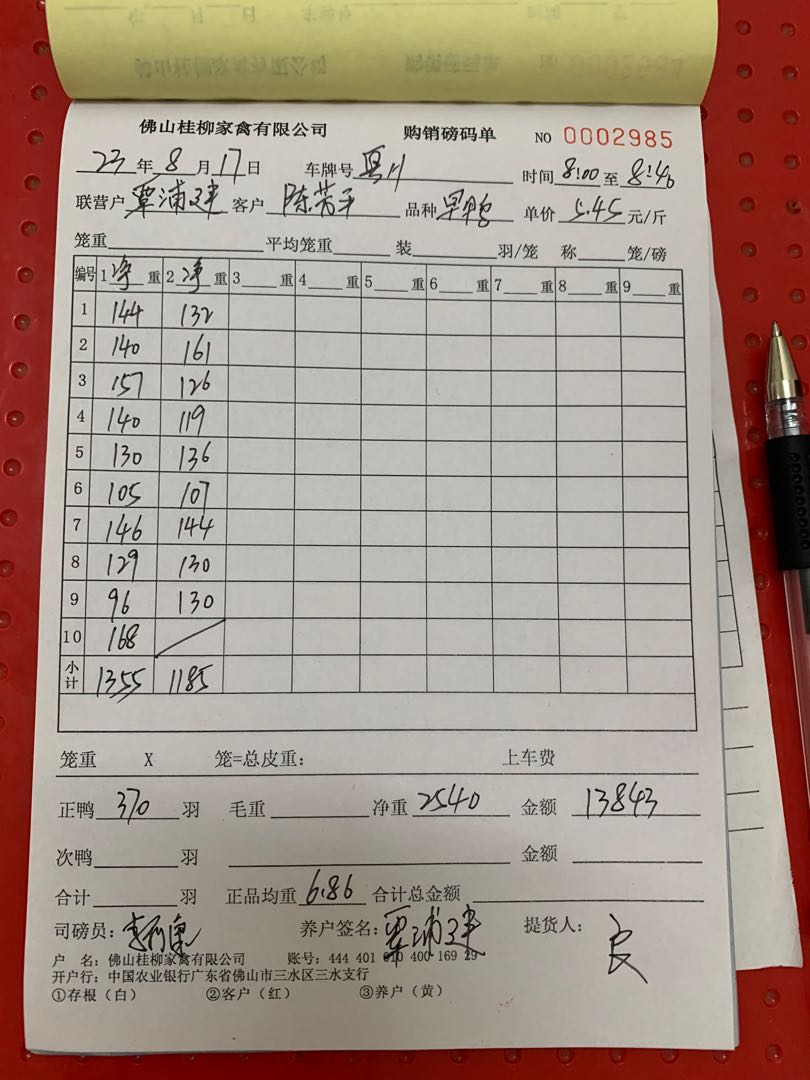 佛山桂柳家禽有限公司 购销磅码单 NO 0002985
23年8月17日 车牌号 时间8:00至8:40
联营户覃浦建 客户陈芳平 品种旱鸭 单价5.45元/斤
笼重 平均笼重 装 羽/笼 称 笼/磅
编号 1净重 2净重 3重 4重 5重 6重 7重 8重 9重
1 144 132
2 140 161
3 157 126
4 140 119
5 130 136
6 105 107
7 146 144
8 129 130
9 96 130
10 168
小计 1355 1185
笼重 X 笼=总皮重: 上车费
正鸭370羽 毛重 净重2540 金额13843
次鸭 羽 金额
合计 羽 正品均重6.86 合计总金额
司磅员: 养户签名:覃浦建 提货人:良
户 名:佛山桂柳家禽有限公司 账号:444 401 010 400 169 29
开户行:中国农业银行广东省佛山市三水区三水支行
①存根(白) ②客户(红) ③养户(黄)